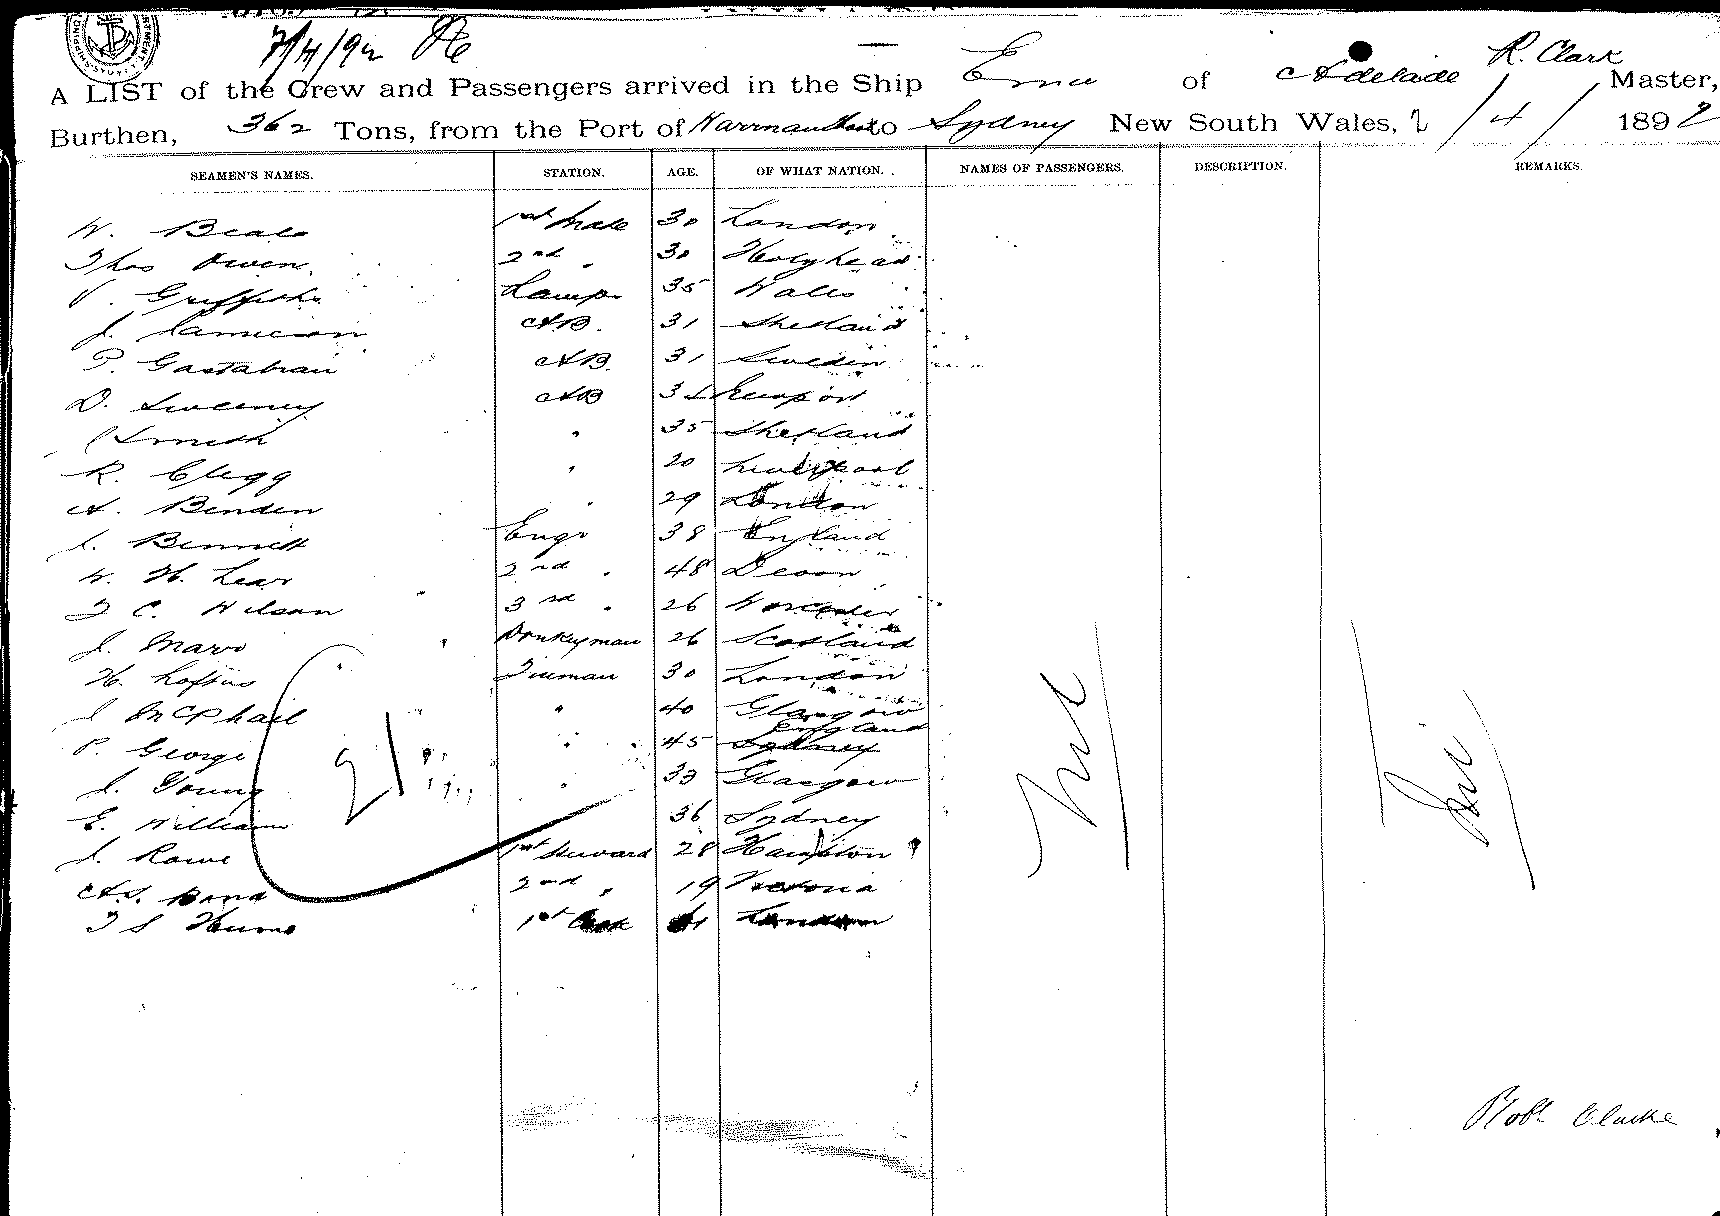 7/4/92
A LIST of the Crew and Passengers arrived in the Ship Erna of Adelaide R. Clark Master,
Burthen, 362 Tons, from the Port of to Sydney New South Wales, 2/4/1892
SEAMEN'S NAMES. STATION. AGE. OF WHAT NATION. NAMES OF PASSENGERS. DESCRIPTION. REMARKS.
W. Beale 1st Mate 30 London
Thos Owen 2nd " 30 Holyhead
Griffiths Lamps 35 Wales
J. Jamieson AB. 31 Shetland
P. AB. 31 Sweden
D. Sweeney AB 31 Newport
Smith " 35 Shetland
R. Clegg " 20 Liverpool
A. Benden " 29 London
J. Bennett Engr 38 England
W. H. Lear 2nd " 48 Devon
T C. Wilson 3rd " 26 Worcester
J. Marr Donkeyman 26 Scotland
H. Loftus Fireman 30 London
J McPhail " 40 Glasgow
P. George " 45 England
J. Young " 33 Glasgow
E. William 36 Sydney
J. Rowe 1st Steward 28 Hampton
A.S. Bond 2nd " 19 Victoria
T S Hume 1st Cook London
21
Nil
Nil
Robt Clarke